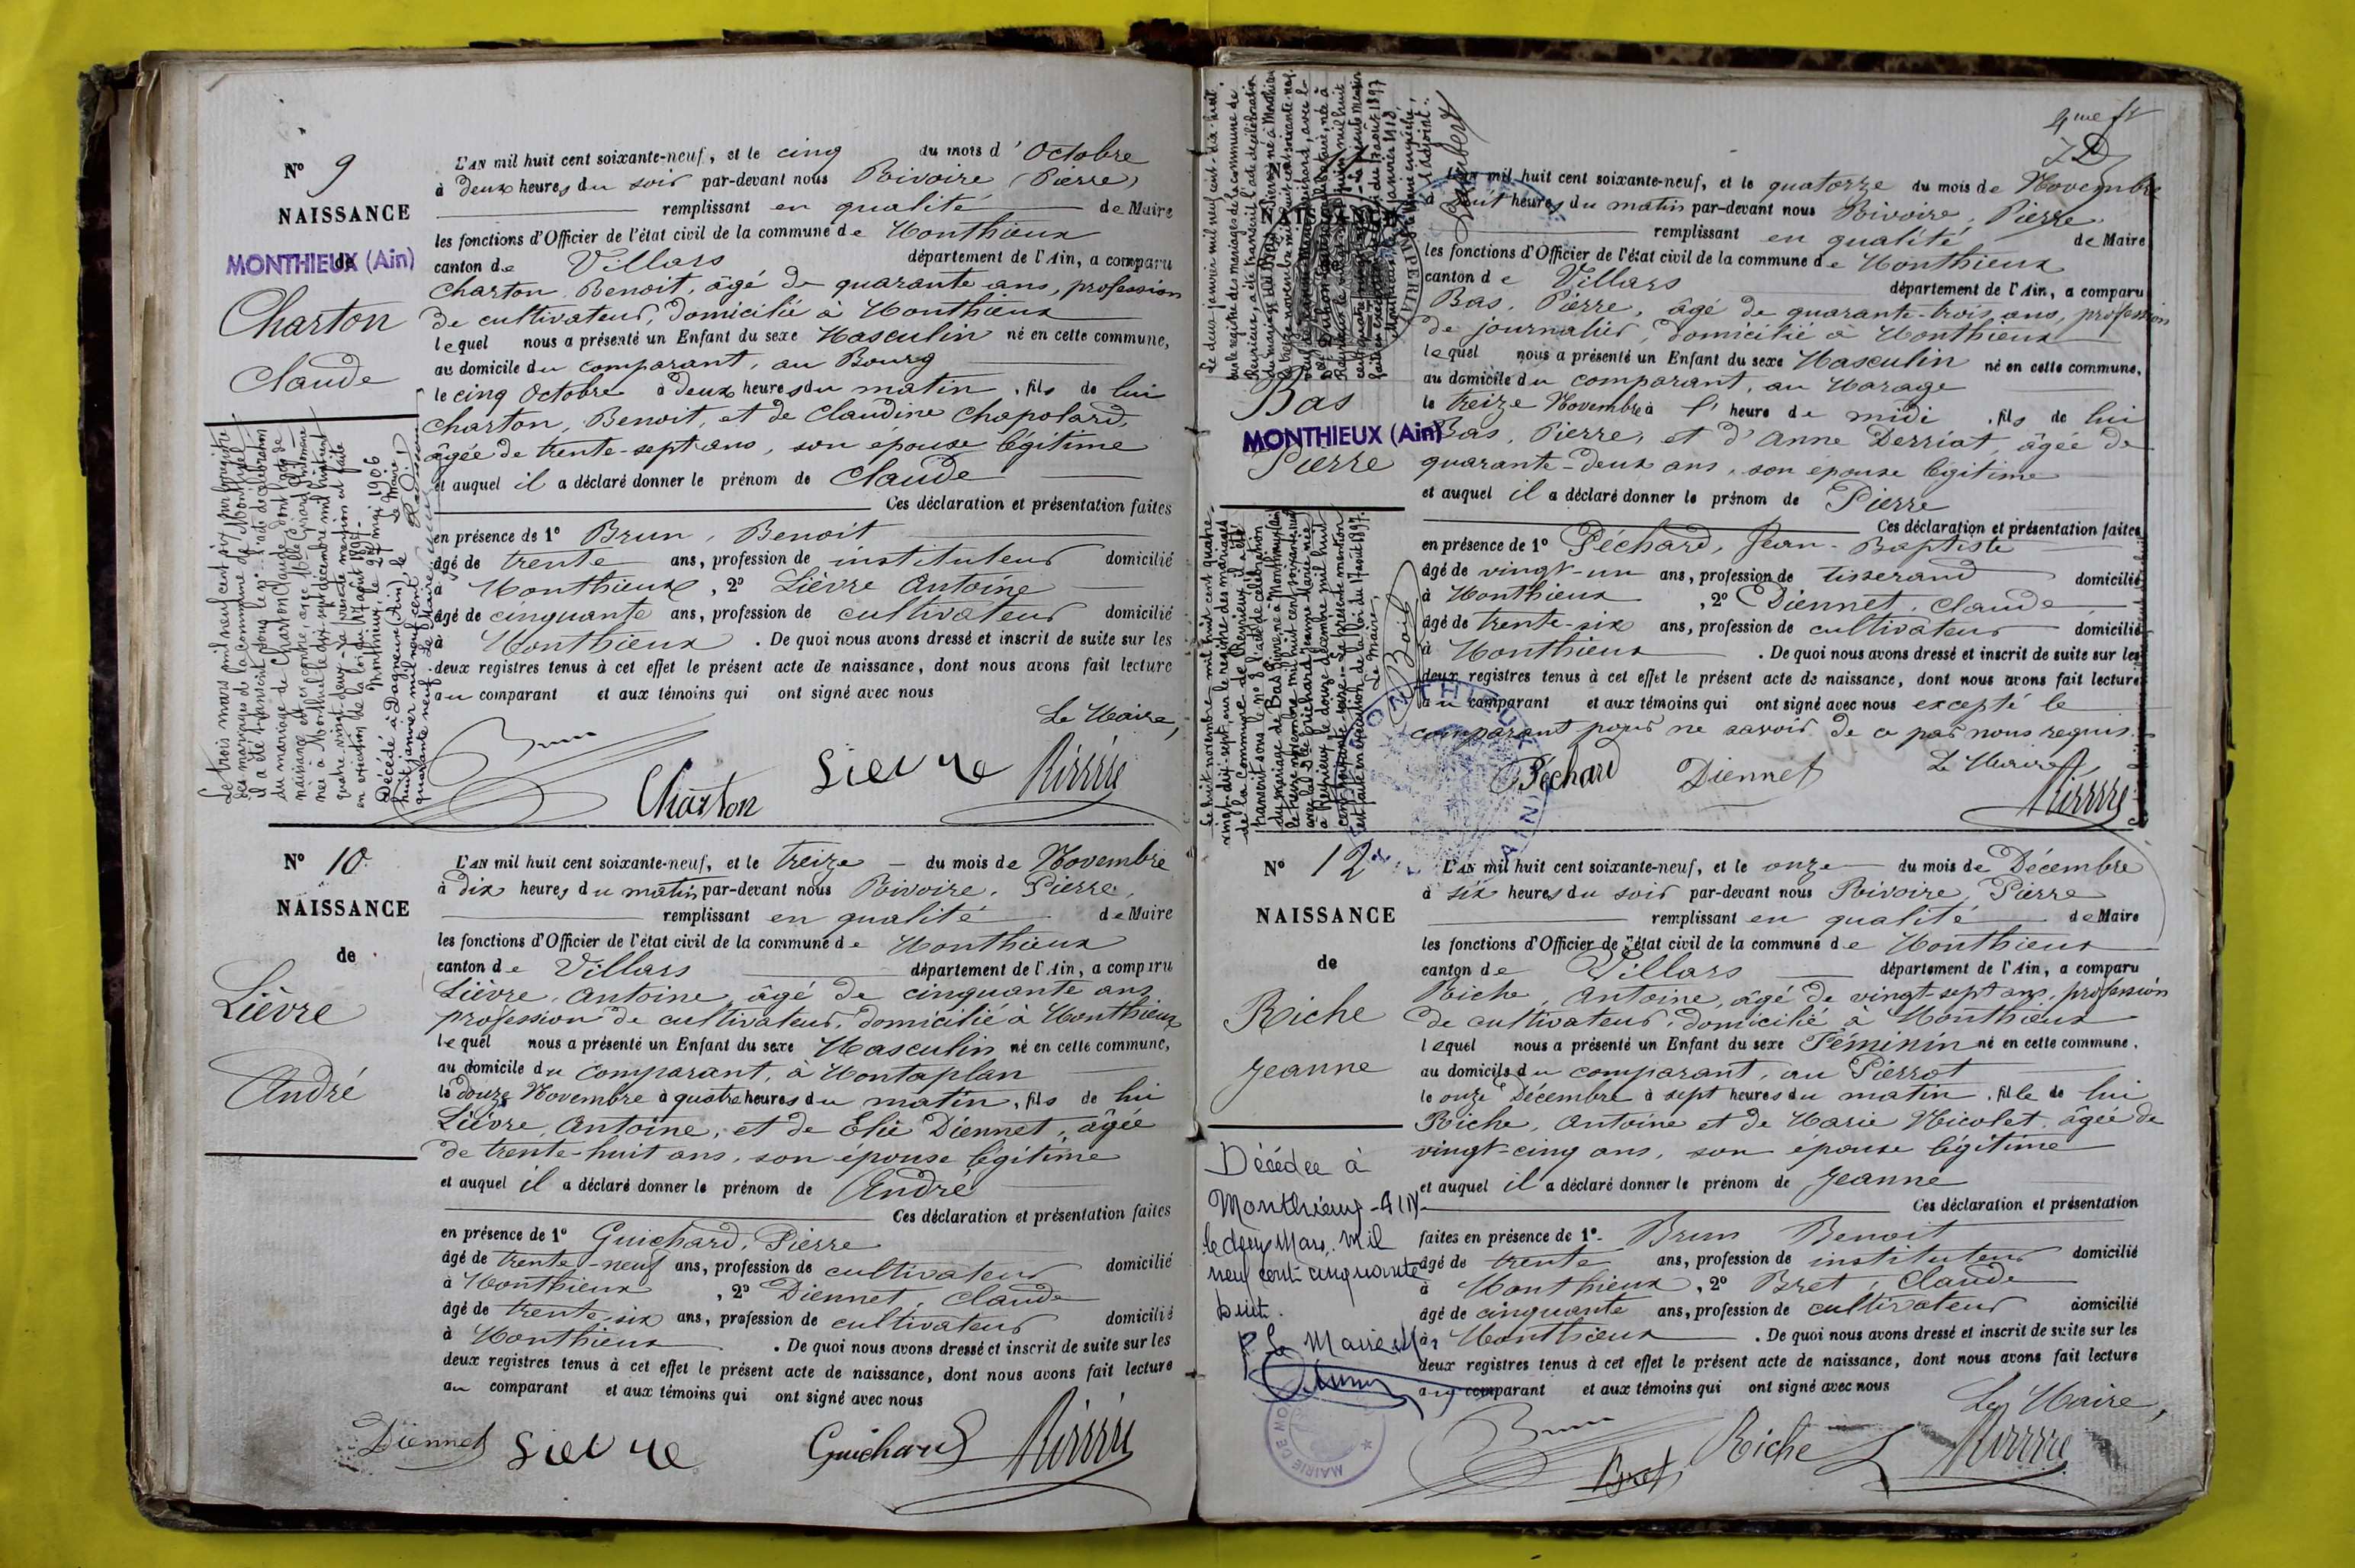 Nº 9
NAISSANCE
de
MONTHIEUX (Ain)
Charton
Claude
L'AN mil huit cent soixante-neuf, et le cinq du mois d'Octobre
à deux heures du soir par-devant nous Rivoire (Pierre)
remplissant en qualité de Maire
les fonctions d'Officier de l'état civil de la commune de Monthieux
canton de Villars département de l'Ain, a comparu
Charton, Benoit, âgé de quarante ans, profession
de cultivateur, domicilié à Monthieux
lequel nous a présenté un Enfant du sexe Masculin né en cette commune,
au domicile du comparant, au Bourg
le cinq Octobre à deux heures du matin, fils de lui
Charton, Benoit, et de Claudine Chapolard,
âgée de trente-sept ans, son épouse légitime
et auquel il a déclaré donner le prénom de Claude
Ces déclaration et présentation faites
en présence de 1º Brun, Benoit
âgé de trente ans, profession de instituteur domicilié
à Monthieux, 2º Lièvre Antoine
âgé de cinquante ans, profession de cultivateur domicilié
à Monthieux. De quoi nous avons dressé et inscrit de suite sur les
deux registres tenus à cet effet le présent acte de naissance, dont nous avons fait lecture
au comparant et aux témoins qui ont signé avec nous
Le Maire,
Brun
Charton
Lievre
Le trois mars mil neuf cent six sur le registre
des mariages de la commune de Monthuel
il a été transcrit sous le nº
du mariage de Charton Claude dont l'acte de
naissance est ci-contre, avec Melle Girard
née à Monthuel le dix-sept décembre mil huit cent
quatre-vingt-deux. La présente mention est faite
en exécution de la loi du 17 août 1897.
Monthieux, le 29 mai 1906
Le Maire
Décédé à Dagneux (Ain) le
huit janvier mil neuf cent
quarante neuf. Le Maire
Nº 10
NAISSANCE
de
Lièvre
André
L'AN mil huit cent soixante-neuf, et le treize du mois de Novembre
à dix heures du matin par-devant nous Rivoire, Pierre,
remplissant en qualité de Maire
les fonctions d'Officier de l'état civil de la commune de Monthieux
canton de Villars département de l'Ain, a comparu
Lièvre, Antoine, âgé de cinquante ans,
profession de cultivateur, domicilié à Monthieux
lequel nous a présenté un Enfant du sexe Masculin né en cette commune,
au domicile du comparant, à Montaplan
le douze Novembre à quatre heures du matin, fils de lui
Lièvre, Antoine, et de Elie Diennet, âgée
de trente-huit ans, son épouse légitime
et auquel il a déclaré donner le prénom de André
Ces déclaration et présentation faites
en présence de 1º Guichard, Pierre
âgé de trente-neuf ans, profession de cultivateur domicilié
à Monthieux, 2º Diennet, Claude
âgé de trente-six ans, profession de cultivateur domicilié
à Monthieux. De quoi nous avons dressé et inscrit de suite sur les
deux registres tenus à cet effet le présent acte de naissance, dont nous avons fait lecture
au comparant et aux témoins qui ont signé avec nous
Diennet
Lievre
Guichard
4me ft
NAISSANCE
Bas
MONTHIEUX (Ain)
Pierre
L'AN mil huit cent soixante-neuf, et le quatorze du mois de Novembre
à huit heures du matin par-devant nous Rivoire, Pierre
remplissant en qualité de Maire
les fonctions d'Officier de l'état civil de la commune de Monthieux
canton de Villars département de l'Ain, a comparu
Bas, Pierre, âgé de quarante-trois ans, profession
de journalier, domicilié à Monthieux
lequel nous a présenté un Enfant du sexe Masculin né en cette commune,
au domicile du comparant, au Marage
le treize Novembre à l'heure de midi, fils de lui
Bas, Pierre, et d'Anne Derriat, âgée de
quarante-deux ans, son épouse légitime
et auquel il a déclaré donner le prénom de Pierre
Ces déclaration et présentation faites
en présence de 1º Péchard, Jean-Baptiste
âgé de vingt-un ans, profession de tisserand domicilié
à Monthieux, 2º Diennet, Claude
âgé de trente-six ans, profession de cultivateur domicilié
à Monthieux. De quoi nous avons dressé et inscrit de suite sur les
deux registres tenus à cet effet le présent acte de naissance, dont nous avons fait lecture
au comparant et aux témoins qui ont signé avec nous excepté le
comparant pour ne savoir de ce par nous requis.
Le Maire,
Péchard
Diennet
Le deux janvier mil neuf cent dix-huit,
sur le registre des mariages de la commune de
Reyrieux, a été transcrit l'acte de célébration
Le huit novembre mil huit cent quatre-
vingt-dix-sept sur le registre des mariages
de la Commune de Reyrieux il a été
transcrit sous le nº 8 l'acte de célébration
du mariage de Bas Pierre né à Monthieux (Ain)
le treize novembre mil huit cent soixante neuf
à Reyrieux le douze décembre mil huit
cent soixante-seize. La présente mention
est faite en exécution de la loi du 17 août 1897.
Le Maire,
MONTHIEUX
AIN
Nº 12
NAISSANCE
de
Riche
Jeanne
L'AN mil huit cent soixante-neuf, et le onze du mois de Décembre
à six heures du soir par-devant nous Rivoire, Pierre
remplissant en qualité de Maire
les fonctions d'Officier de l'état civil de la commune de Monthieux
canton de Villars département de l'Ain, a comparu
Riche, Antoine, âgé de vingt-sept ans, profession
de cultivateur, domicilié à Monthieux
lequel nous a présenté un Enfant du sexe Féminin né en cette commune,
au domicile du comparant, au Pierrot
le onze Décembre à sept heures du matin, fille de lui
Riche, Antoine et de Marie Nicolet, âgée de
vingt-cinq ans, son épouse légitime
et auquel il a déclaré donner le prénom de Jeanne
Ces déclaration et présentation
faites en présence de 1º Brun Benoit
âgé de trente ans, profession de instituteur domicilié
à Monthieux, 2º Bret, Claude
âgé de cinquante ans, profession de cultivateur domicilié
à Monthieux. De quoi nous avons dressé et inscrit de suite sur les
deux registres tenus à cet effet le présent acte de naissance, dont nous avons fait lecture
au comparant et aux témoins qui ont signé avec nous
Le Maire,
Brun
Bret
Riche
Décédée à
Monthieux
le deux Mars mil
neuf cent cinquante
huit.
P. le Maire
MAIRIE DE MON